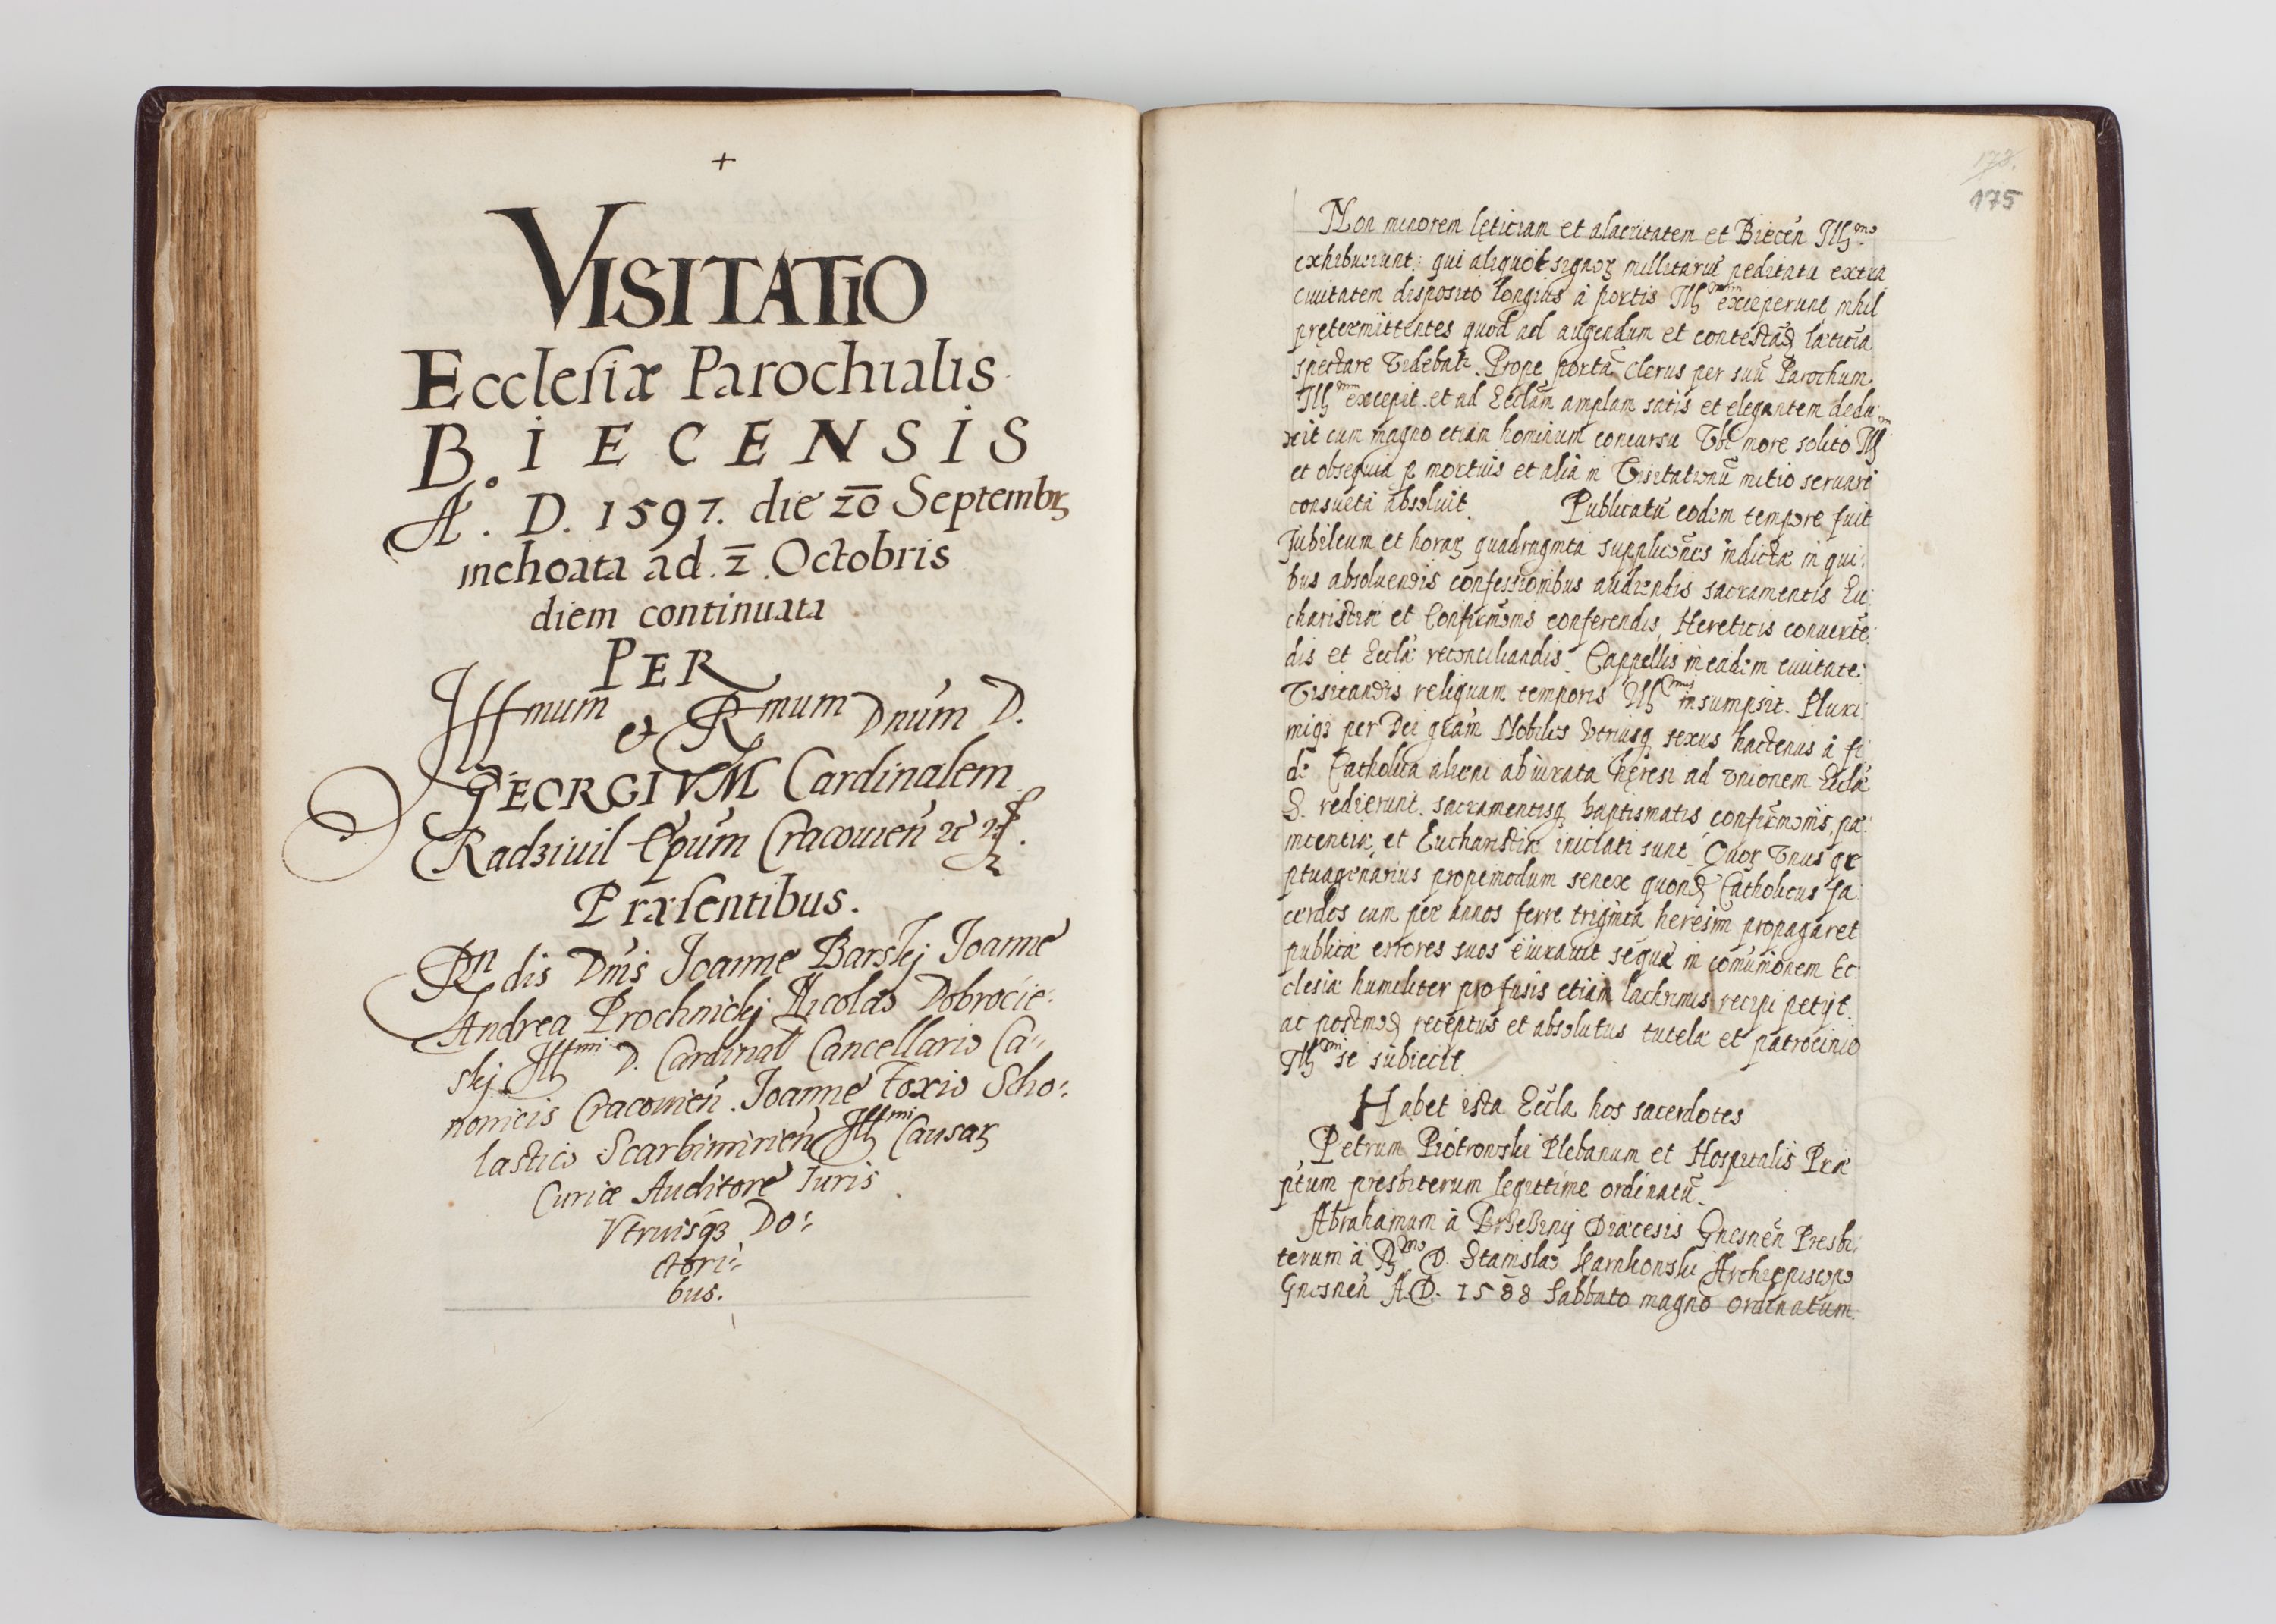 +
VISITATIO
Ecclesiæ Parochialis
BIECENSIS
A. D. 1597. die 20 Septembr
inchoata ad. 2. Octobris
diem continuata
PER
Illmum et Rmum Dnum D.
GEORGIVM Cardinalem
Radziuil Epum Cracouien
Præsentibus.
Rndis Dnis Joanne Barskj Joanne
Andrea Prochnickj Nicolao Dobrocie:
skj Illmi D. Cardinal Cancellario Ca-
nonicis Cracouien. Joanne Foxio Scho:
lastico Scarbimirien Illmi Causar
Curiæ Auditore Iuris
Vtriusq3 Do:
ctori:
bus.
175
Non minorem lęticiam et alacritatem et Biecen Illmo
exhibuerunt: qui aliquot signor militariu peditatu extra
ciuitatem disposito longius à portis Illmum exceperunt nihil
prętermittentes quod ad augendum et contestad lætitiā
spectare videbatr. Prope portā clerus per suū Parochum
Illmum excepit et ad Ecclam amplam satis et elegantem dedu:
xit cum magno etiam hominum concursu Vbi more solito Illmus
et obsequia p mortuis et alia in Visitationū initio seruari
consueta absoluit. Publicatū eodem tempore fuit
Jubileum et horar quadraginta supplicones indictæ in qui:
bus absoluendis confessionibus audiendis sacramentis Eu:
charistiæ et Confirmonis conferendis, Hereticis conuertē:
dis et Ecclæ reconciliandis. Cappellis in eadem ciuitate
Visitandis reliquum temporis Illmus insumpsit. Pluri:
miq3 per Dei gram Nobiles vtriusq sexus hactenus à fi:
de Catholica alieni abiurata hęresi ad vnionem Ecclæ
S. redierunt. sacramentisq baptismatis confirmonis, pæ:
nitentiæ, et Eucharistiæ iniciati sunt. Quor vnus se
ptuagenarius propemodum senex quond Catholicus sa:
cerdos cum per annos ferre triginta heresim propagaret
publice errores suos eiurauit seque in comunionem Ec
clesiæ humiliter profusis etiam lachrimis recipi petijt.
ac postmod receptus et absolutus tutelæ et patrocinio
Illmi se subiecit.
Habet ista Eccla hos sacerdotes
Petrum Piotrowski Plebanum et Hospitalis Præ
ptum presbiterum legittime ordinatū.
Abrahamum à Diæcesis Gnesnen Presbi:
terum à Rmo D. Stanislao Karnkowski Archiepiscopo
Gnesnen A.D. 1588 Sabbato magno ordinatum.